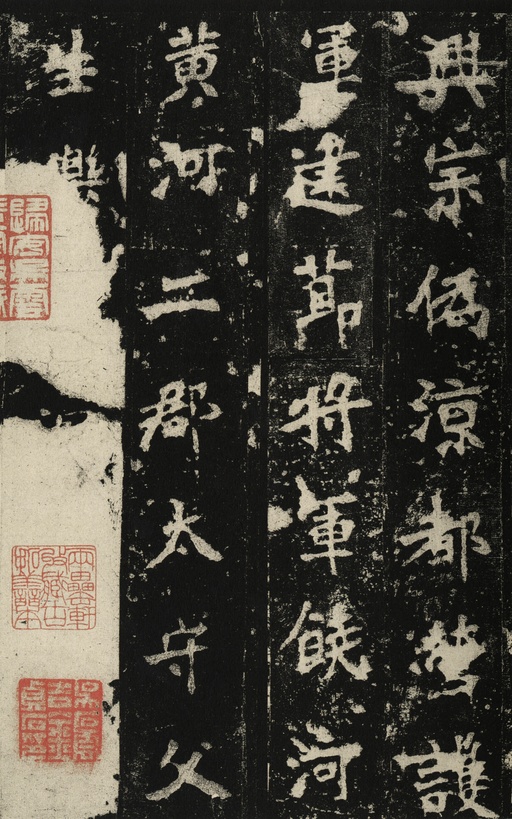 興宗僞涼都營護
軍建莭將軍饒河
黃河二郡太守父
生樂